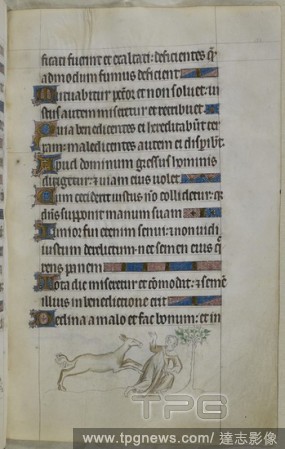 ficati fuerint et exaltati: deficientes q̄
admodum fumus deficient
Mutuabitur pctor̄ et non soluet: iu
stus autem miseretur et retribuet
Quia benedicentes ei hereditabūt ter
ram: maledicentes autem ei disp̄ibt
Apud dominum gressus hominis
dirigetur: et uiam eius uolet
Cum ceciderit iustus nō collidetur: q̄
dn̄s supponit manum suam
Iunior fui etenim senui: et non uidi
iustum derelictum: nec semen eius q̄
rens panem
Tota die miseretur et cōmodat: et semē
illius in benedictione erit
Declina a malo et fac bonum: et in
TPG
www.tpgnews.com/ 達志影像